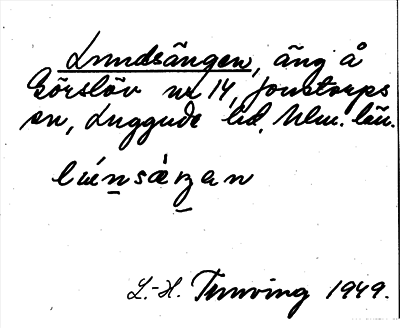 Lundsängen, äng å
Görslöv nr 14, Jonstorps
sn, Luggude hd, Mlm. län.
L.-H. Tunving 1949.